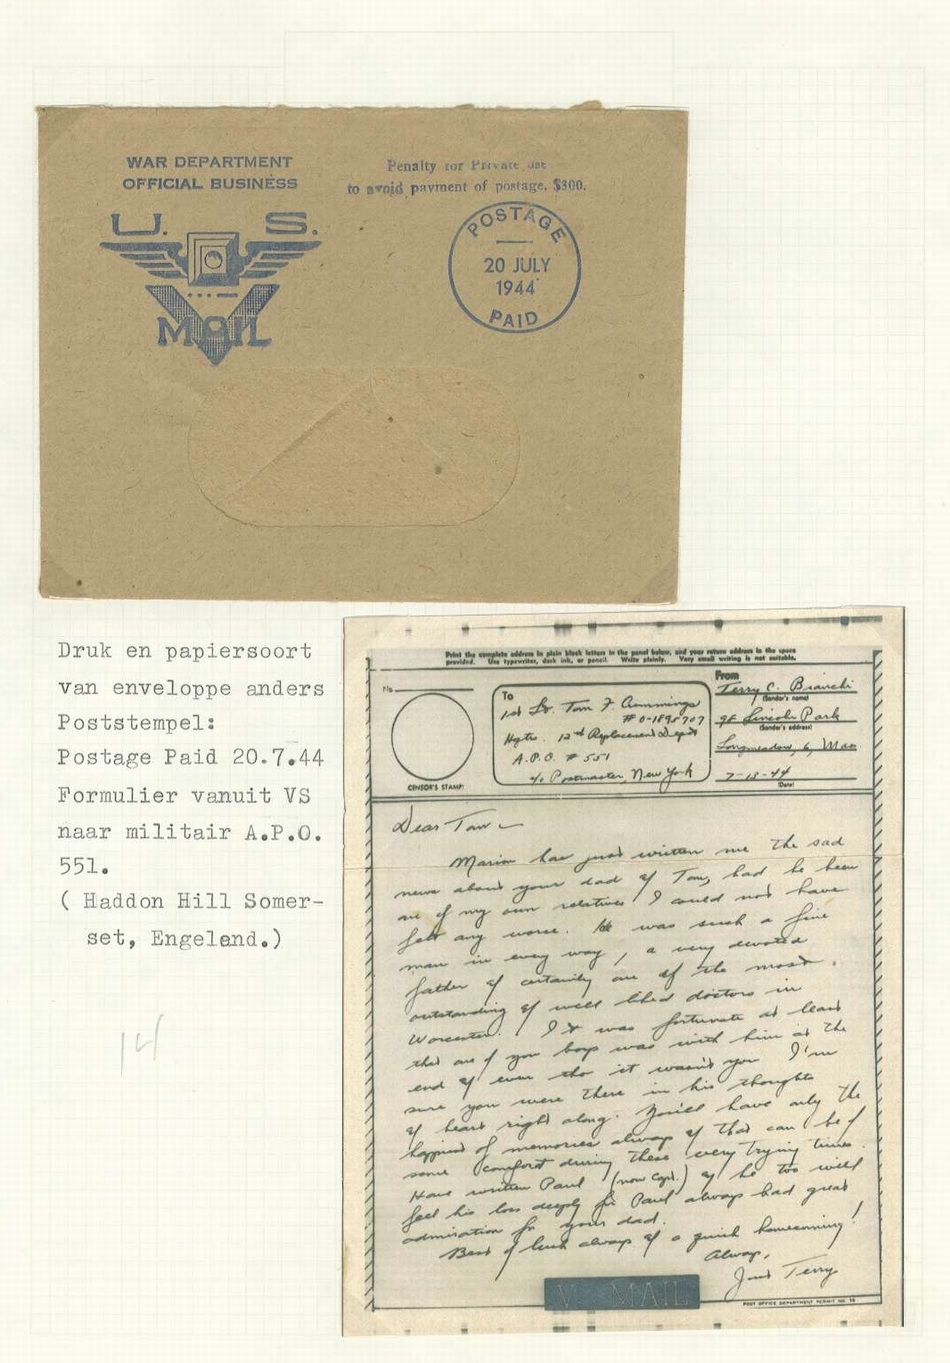 WAR DEPARTMENT
OFFICIAL BUSINESS
U. S.
MAIL
Penalty for Private Use
to avoid payment of postage, $300.
POSTAGE
20 JULY
1944
PAID
Druk en papiersoort
van enveloppe anders
Poststempel:
Postage Paid 20.7.44
Formulier vanuit VS
naar militair A.P.O.
551.
( Haddon Hill Somer-
set, Engeland.)
14
Print the complete address in plain block letters in the panel below, and your return address in the space
provided. Use typewriter, dark ink, or pencil. Write plainly. Very small writing is not suitable.
No.
CENSOR'S STAMP
To
1st Lt. Tom F. Cummings
# 0-1895707
Hqtrs. 12th Replacement Depot
A.P.O. # 551
c/o Postmaster, New York
From
Terry C. Bianchi
(Sender's name)
98 Lincoln Park
(Sender's address)
Longmeadow, 6, Mass
7-13-44
(Date)
Dear Tom –
Marion has just written me the sad
news about your dad & Tom, had he been
one of my own relatives I could not have
felt any worse. He was such a fine
man in every way, a very devoted
father & certainly one of the most
outstanding & well liked doctors in
Worcester. It was fortunate at least
that one of you boys was with him at the
end & even tho it wasn't you I'm
sure you were there in his thoughts
& heart right along. You'll have only the
happiest of memories always & that can be of
some comfort during these very trying times.
Have written Paul (now Capt.) & he too will
feel his loss deeply for Paul always had great
admiration for your dad.
Best of luck always & a quick homecoming!
Always,
Just Terry
V MAIL
POST OFFICE DEPARTMENT PERMIT NO.